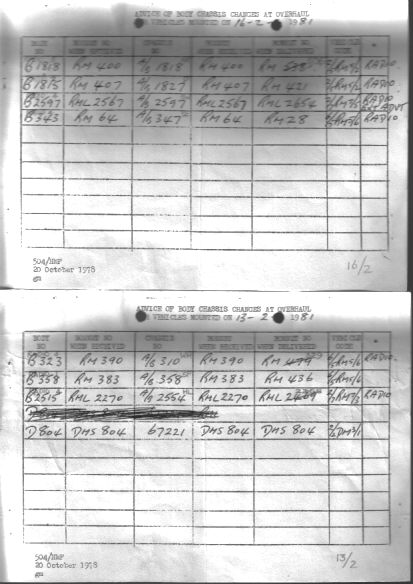 ADVICE OF BODY CHASSIS CHANGES AT OVERHAUL
VEHICLES MOUNTED ON 16-2-1981
BODY NO BONNET NO WHEN RECEIVED CHASSIS NO BONNET NO WHEN RECEIVED BONNET NO WHEN DELIVERED VEHICLE CODE
B1818 RM 400 1818 RM 400 RM RADIO
B1815 RM 407 1827 RM 407 RM 421 RADIO
B2597 RML 2567 2597 RML 2567 RML 2654 RADIO
B343 RM 64 347 RM 64 RM 28 RADIO
504/HMP
20 October 1978
16/2
ADVICE OF BODY CHASSIS CHANGES AT OVERHAUL
VEHICLES MOUNTED ON 13-2-1981
BODY NO BONNET NO WHEN RECEIVED CHASSIS NO BONNET NO WHEN RECEIVED BONNET NO WHEN DELIVERED VEHICLE CODE
B323 RM 390 310 RM 390 RM RADIO
B358 RM 383 358 RM 383 RM 436
B2515 RML 2270 2554 RML 2270 RML RADIO
D804 DMS 804 67221 DMS 804 DMS 804
504/HMP
20 October 1978
13/2